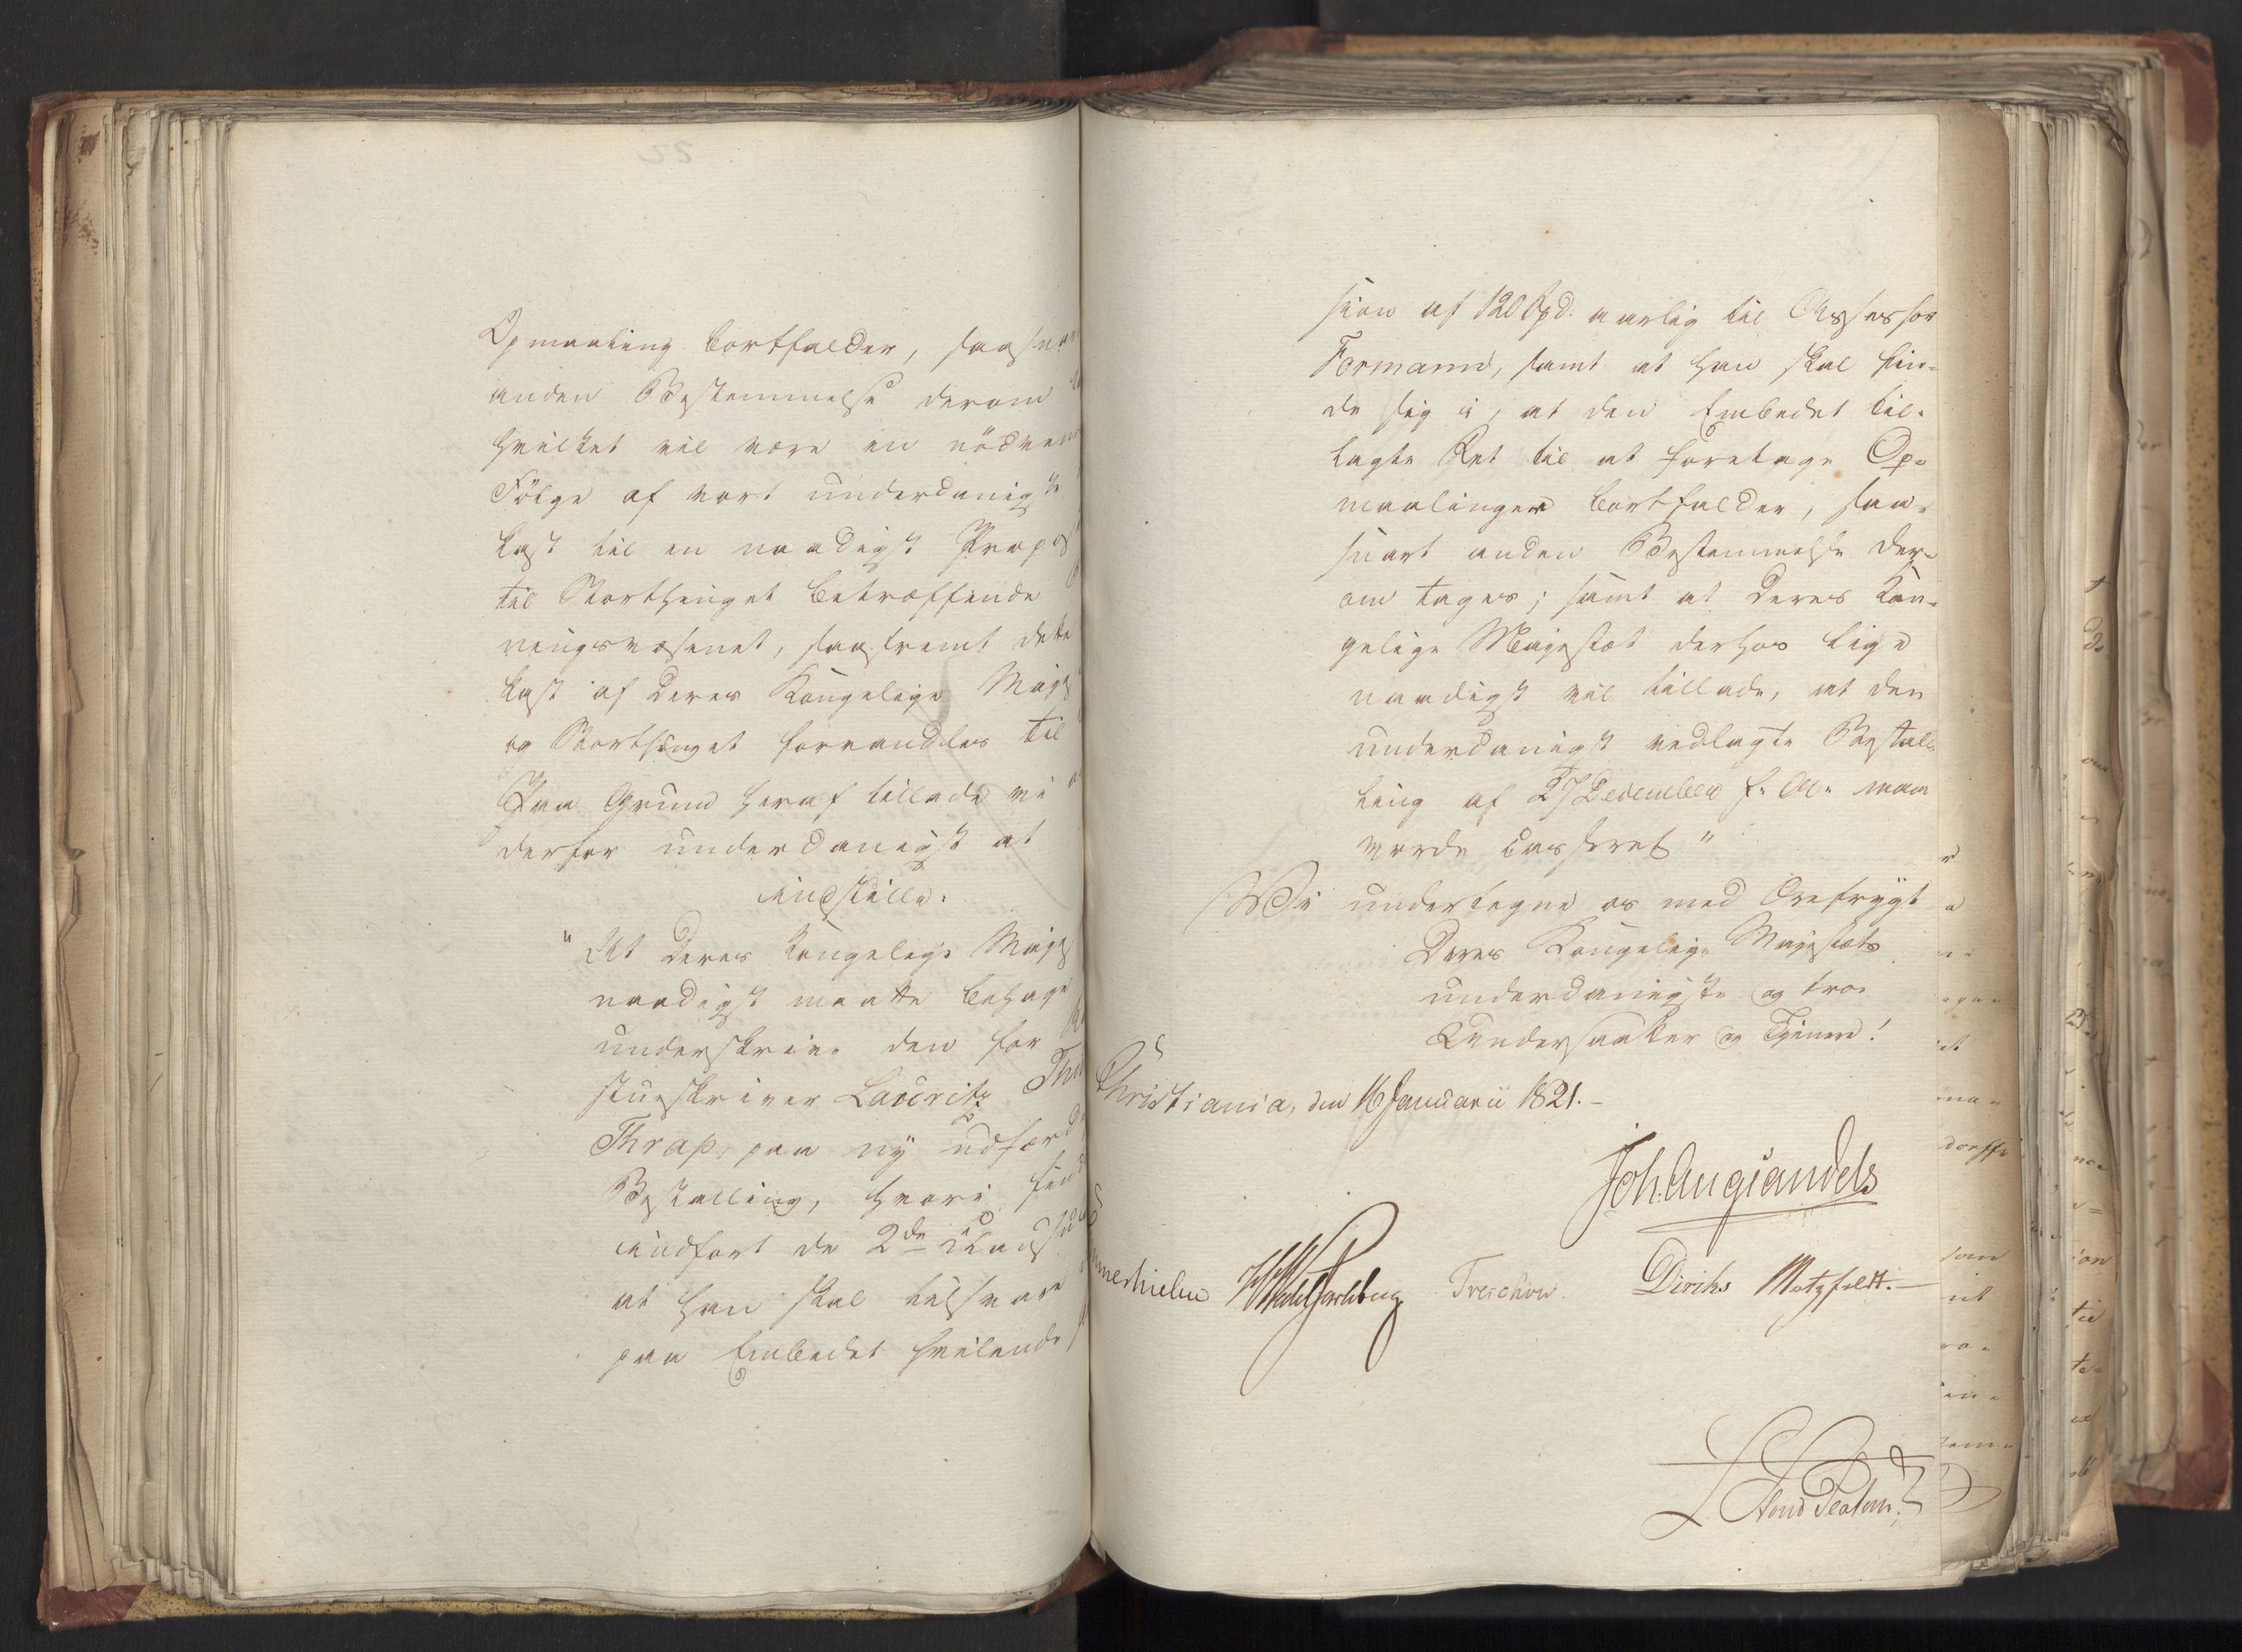 Opmaaling bortfalder, saasna
anden Bestemmelse derom
hvilket vil være en nödven
Fölge af vort underdanigste
kast til en naadigst Propos
til Storthinget betræffende
ningsvæsenet, saafremt dette
kast af Deres Kongelige Maje
og Storthinget forvandles til
Paa Grund heraf tillade vi
derfor underdanigst at
indstille:
"At Deres Kongelige Maje
naadigst maatte behage
underskrive den for
stueskriver Lauritz
Thrap, paa ny udfærd
Bestalling, hvori
indfört de 2de Clausu
at han skal tilsvare
paa Embedet hvilende
sion af 120 Spd. aarlig til Assessor
Formann, samt at han skal fin-
de sig i, at den Embedet til-
lagte Ret til at foretage Op-
maalinger bortfalder, saa-
snart anden Bestemmelse der-
om tages; samt at Deres Kon-
gelige Majestæt derhos lige
naadigst vil tillade, at den
underdanigst vedlagte Bestal-
ling af 27 December f. A. maa
vorde casseret"
Vi undertegne os med Ærefrygt
Deres Kongelige Majestæts
underdanigste og tro-
Undersaatter og Tjenere!
Christiania, den 16 Januarii 1821.-
Joh. Aug Sandels
mmerhielm WedelJarlsberg Treschow. Diriks Motzfeldt.-